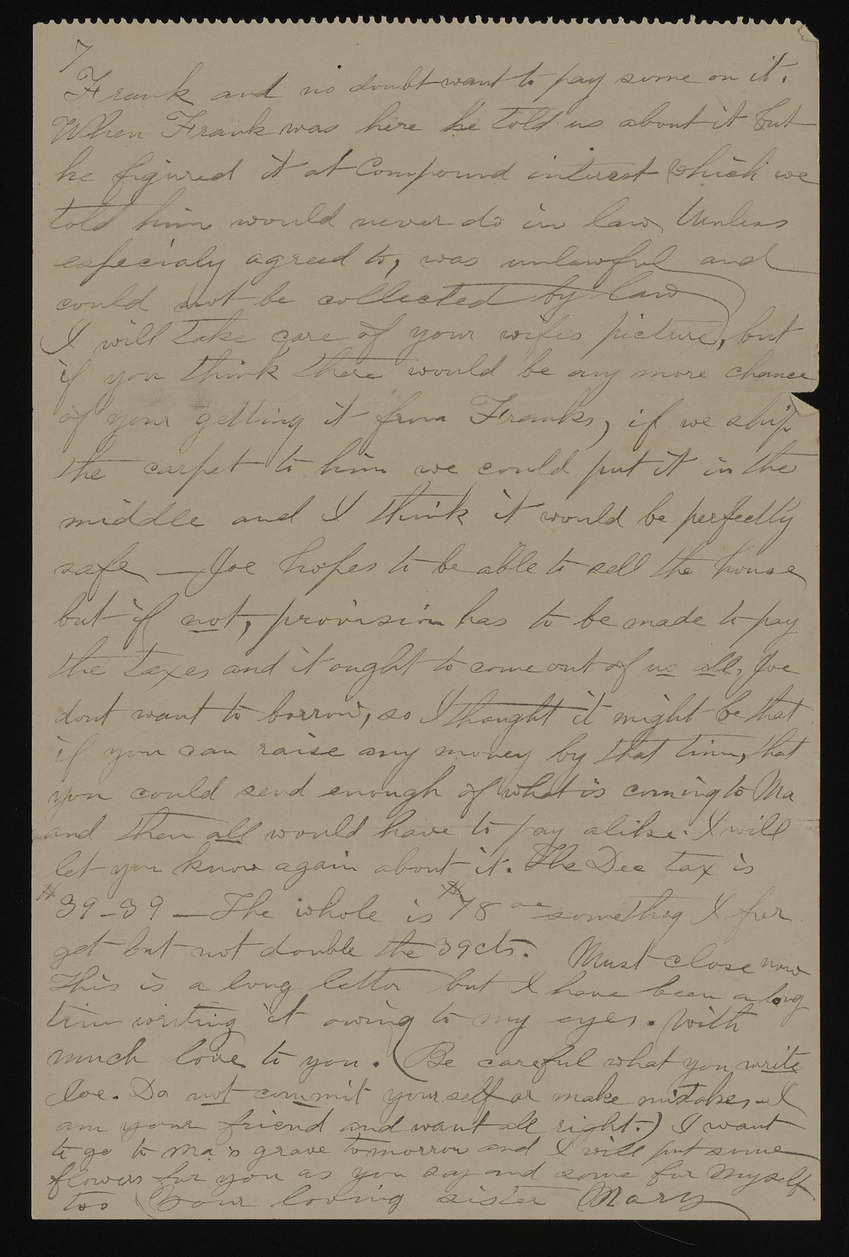 7
Frank and no doubt want to pay some on it.
When Frank was here he told us about it but
he figured it at compound interest (which we
told him would never do in law, Unless
especialy agreed to, was unlawful and
could not be collected by law)
I will take care of your wifes picture, but
if you think there would be any more chance
of your getting it from Franks, if we ship
the carpet to him we could put it in the
middle and I think it would be perfectly
safe — Joe hopes to be able to sell the house
but if not, provision has to be made to pay
the taxes and it ought to come out of us all, Joe
dont want to borrow, so I thought it might be that
if you can raise any money by that time, that
you could send enough of what is coming to Ma
and then all would have to pay alike. I will
let you know again about it. The Dec tax is
$39-39 — The whole is $78 something I for
get but not double the 39cts. Must close now
This is a long letter but I have been a long
time writing it owing to my eyes. With
much love to you. (Be careful what you write
Joe. Do not commit yourself or make mistakes - I
am your friend and want all right.) I want
to go to Ma's grave tomorrow and I will put some
flowers for you as you say and some for myself
too Your loving sister Mary